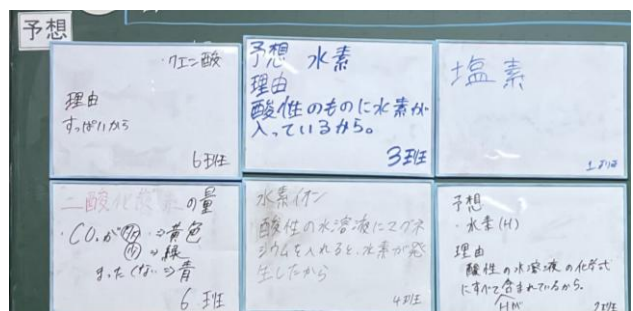 予想
・クエン酸
理由
すっぱいから
6班
予想 水素
理由
酸性のものに水素が
入っているから。
3班
塩素
1班
二酸化炭素の量
・CO₂が多⇒黄色
少⇒緑
まったくない⇒青
6班
水素イオン
酸性の水溶液にマグネ
シウムを入れると、水素が発
生したから
4班
予想
・水素(H)
理由
酸性の水溶液の化学式
にすべて含まれているから。
Hが